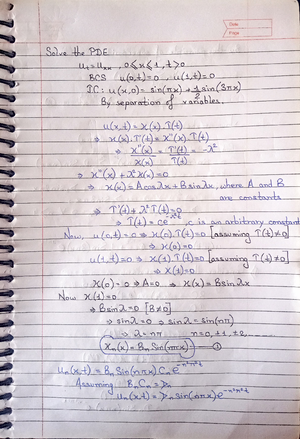 Date
Page
Solve the PDE
u_t = u_xx , 0 ≤ x ≤ 1, t > 0
BCS u(0,t) = 0 , u(1,t) = 0
IC : u(x,0) = sin(πx) + 1/2 sin(3πx)
By separation of variables.
u(x,t) = X(x). T(t)
⇒ X(x). T'(t) = X''(x). T(t)
⇒ X''(x)/X(x) = T'(t)/T(t) = -λ²
⇒ X''(x) + λ²X(x) = 0
⇒ X(x) = A cos λx + B sin λx, where A and B
are constants
⇒ T'(t) + λ²T(t) = 0
⇒ T(t) = ce^-λ²t, c is an arbitrary constant
Now, u(0,t) = 0 ⇒ X(0) T(t) = 0 [assuming T(t) ≠ 0]
⇒ X(0) = 0
u(1,t) = 0 ⇒ X(1) T(t) = 0 [assuming T(t) ≠ 0]
⇒ X(1) = 0
X(0) = 0 ⇒ A = 0 ⇒ X(x) = B sin λx
Now X(1) = 0
⇒ B sin λ = 0 [B ≠ 0]
⇒ sin λ = 0 ⇒ sin λ = sin(nπ)
⇒ λ = nπ n = 0, ±1, ±2,
X_n(x) = B_n Sin(nπx) ①
u_n(x,t) = B_n Sin(nπx) C_n e^-n²π²t
Assuming B_n C_n = D_n
u_n(x,t) = D_n sin(nπx) e^-n²π²t